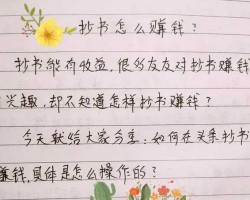 抄书怎么赚钱？
抄书能有收益，很多友友对抄书赚钱
兴趣，却不知道怎样抄书赚钱？
今天就给大家分享：如何在头条抄书
赚钱，具体是怎么操作的？